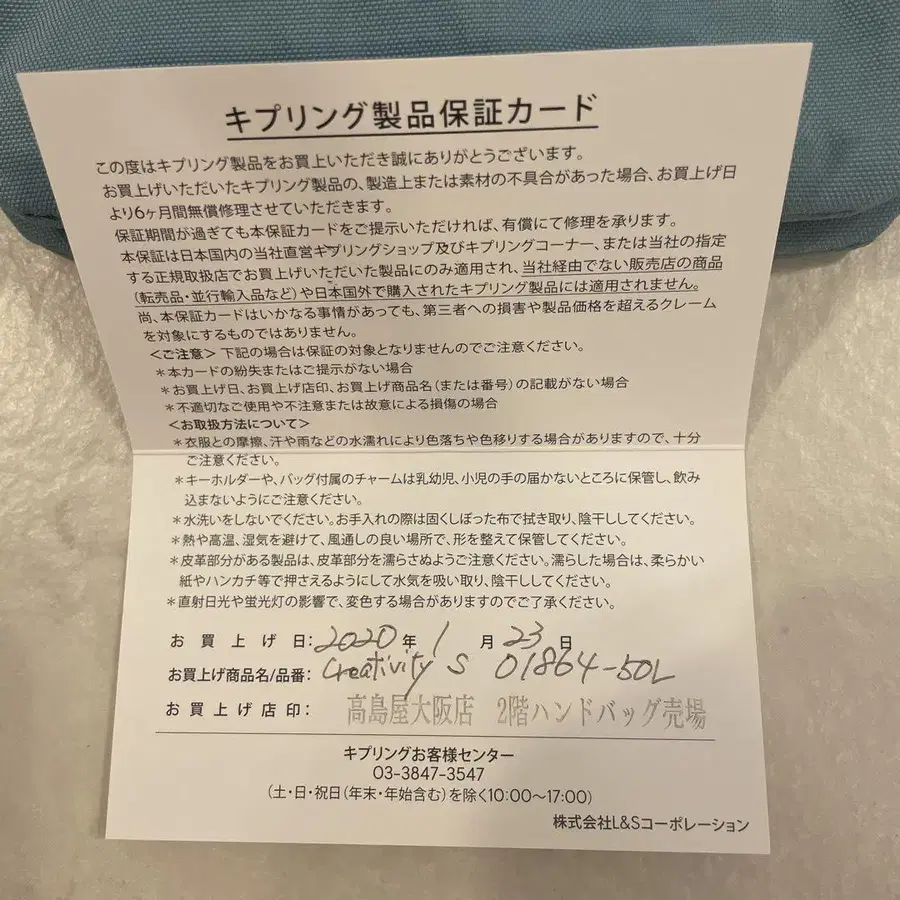 キプリング製品保証カード
この度はキプリング製品をお買上いただき誠にありがとうございます。
お買上げいただいたキプリング製品の、製造上または素材の不具合があった場合、お買上げ日
より6ヶ月間無償修理させていただきます。
保証期間が過ぎても本保証カードをご提示いただければ、有償にて修理を承ります。
本保証は日本国内の当社直営キプリングショップ及びキプリングコーナー、または当社の指定
する正規取扱店でお買上げいただいた製品にのみ適用され、当社経由でない販売店の商品
(転売品・並行輸入品など)や日本国外で購入されたキプリング製品には適用されません。
尚、本保証カードはいかなる事情があっても、第三者への損害や製品価格を超えるクレーム
を対象にするものではありません。
<ご注意> 下記の場合は保証の対象となりませんのでご注意ください。
＊本カードの紛失またはご提示がない場合
＊お買上げ日、お買上げ店印、お買上げ商品名(または番号)の記載がない場合
＊不適切なご使用や不注意または故意による損傷の場合
<お取扱方法について>
＊衣服との摩擦、汗や雨などの水濡れにより色落ちや色移りする場合がありますので、十分
ご注意ください。
＊キーホルダーや、バッグ付属のチャームは乳幼児、小児の手の届かないところに保管し、飲み
込まないようにご注意ください。
＊水洗いをしないでください。お手入れの際は固くしぼった布で拭き取り、陰干ししてください。
＊熱や高温、湿気を避けて、風通しの良い場所で、形を整えて保管してください。
＊皮革部分がある製品は、皮革部分を濡らさぬようご注意ください。濡らした場合は、柔らかい
紙やハンカチ等で押さえるようにして水気を吸い取り、陰干ししてください。
＊直射日光や蛍光灯の影響で、変色する場合がありますのでご了承ください。
お買上げ日: 2020 年 1 月 23 日
お買上げ商品名/品番: Creativity S 01864-50L
お買上げ店印: 高島屋大阪店 2階ハンドバッグ売場
キプリングお客様センター
03-3847-3547
(土・日・祝日(年末・年始含む)を除く10:00～17:00)
株式会社L&Sコーポレーション